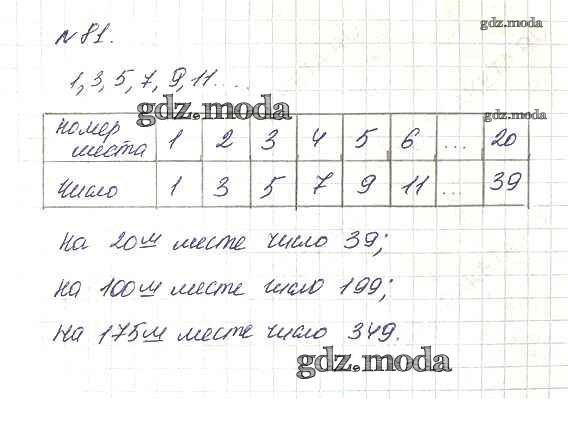 gdz.moda
№81.
1, 3, 5, 7, 9, 11....
gdz.moda
номер места 1 2 3 4 5 6 ... 20
gdz.moda
число 1 3 5 7 9 11 ... 39
На 20м месте число 39;
На 100м месте число 199;
На 175м месте число 349.
gdz.moda